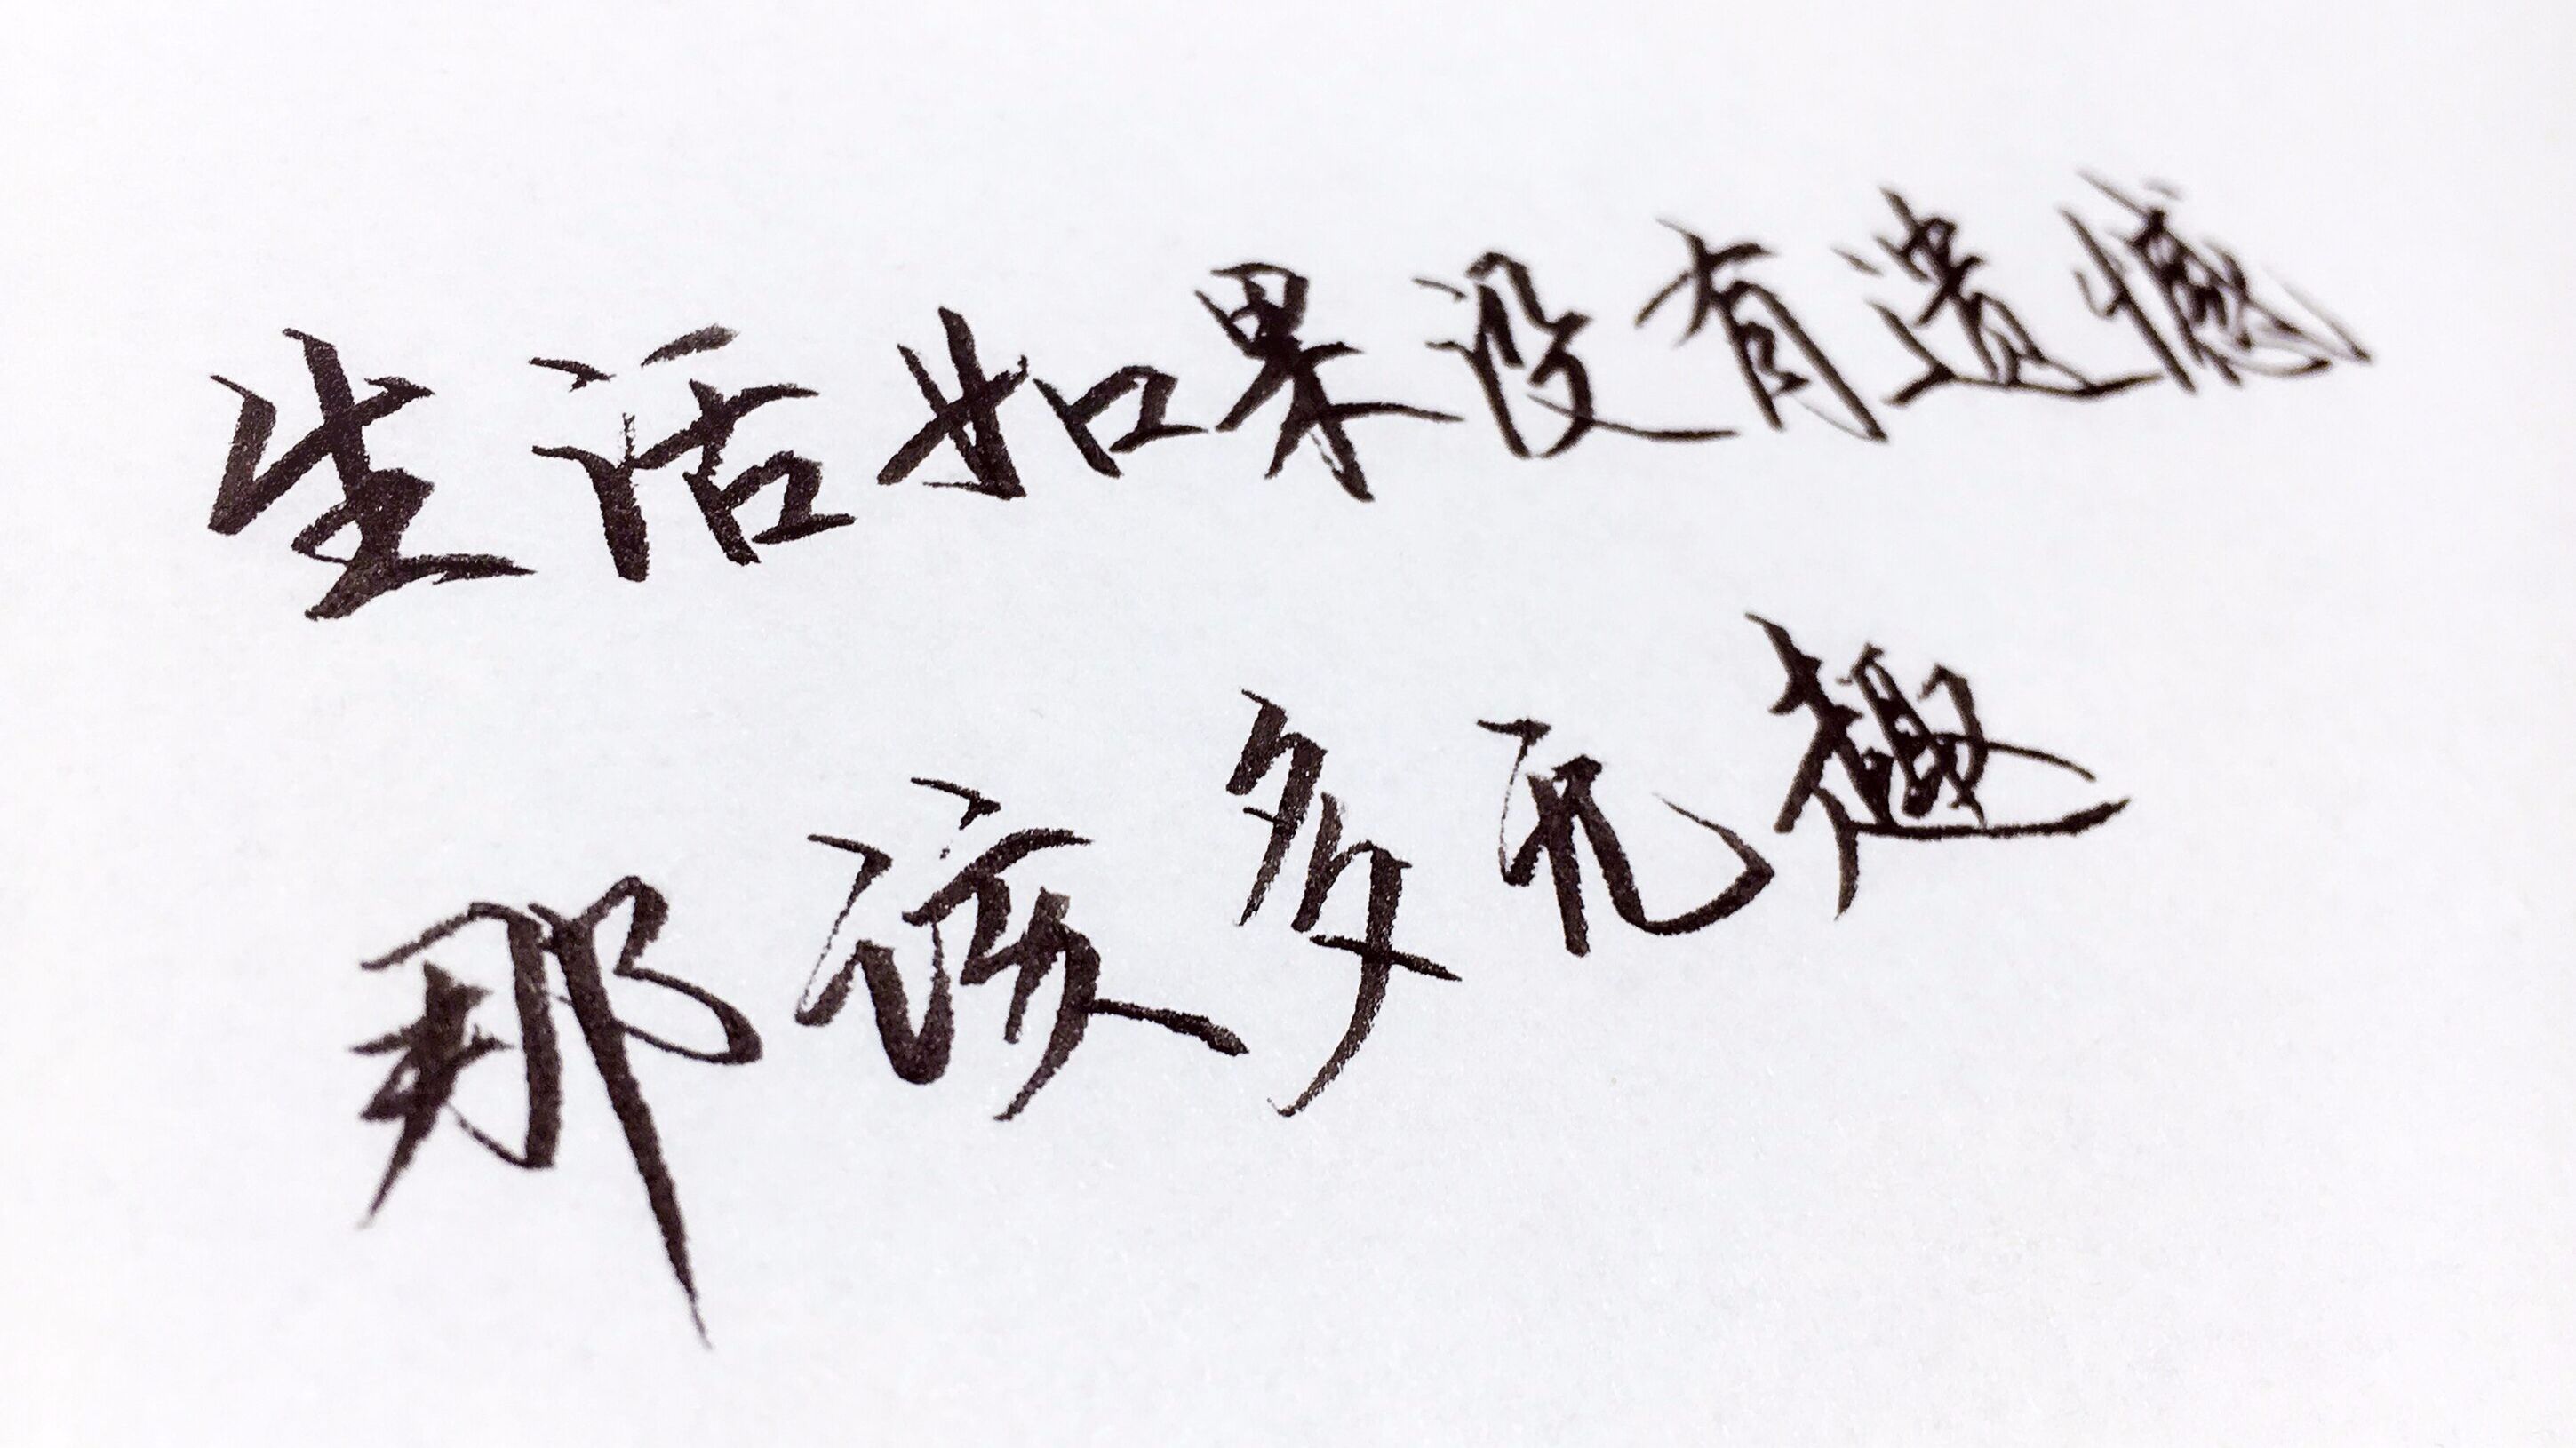 生活如果没有遗憾
那该多无趣